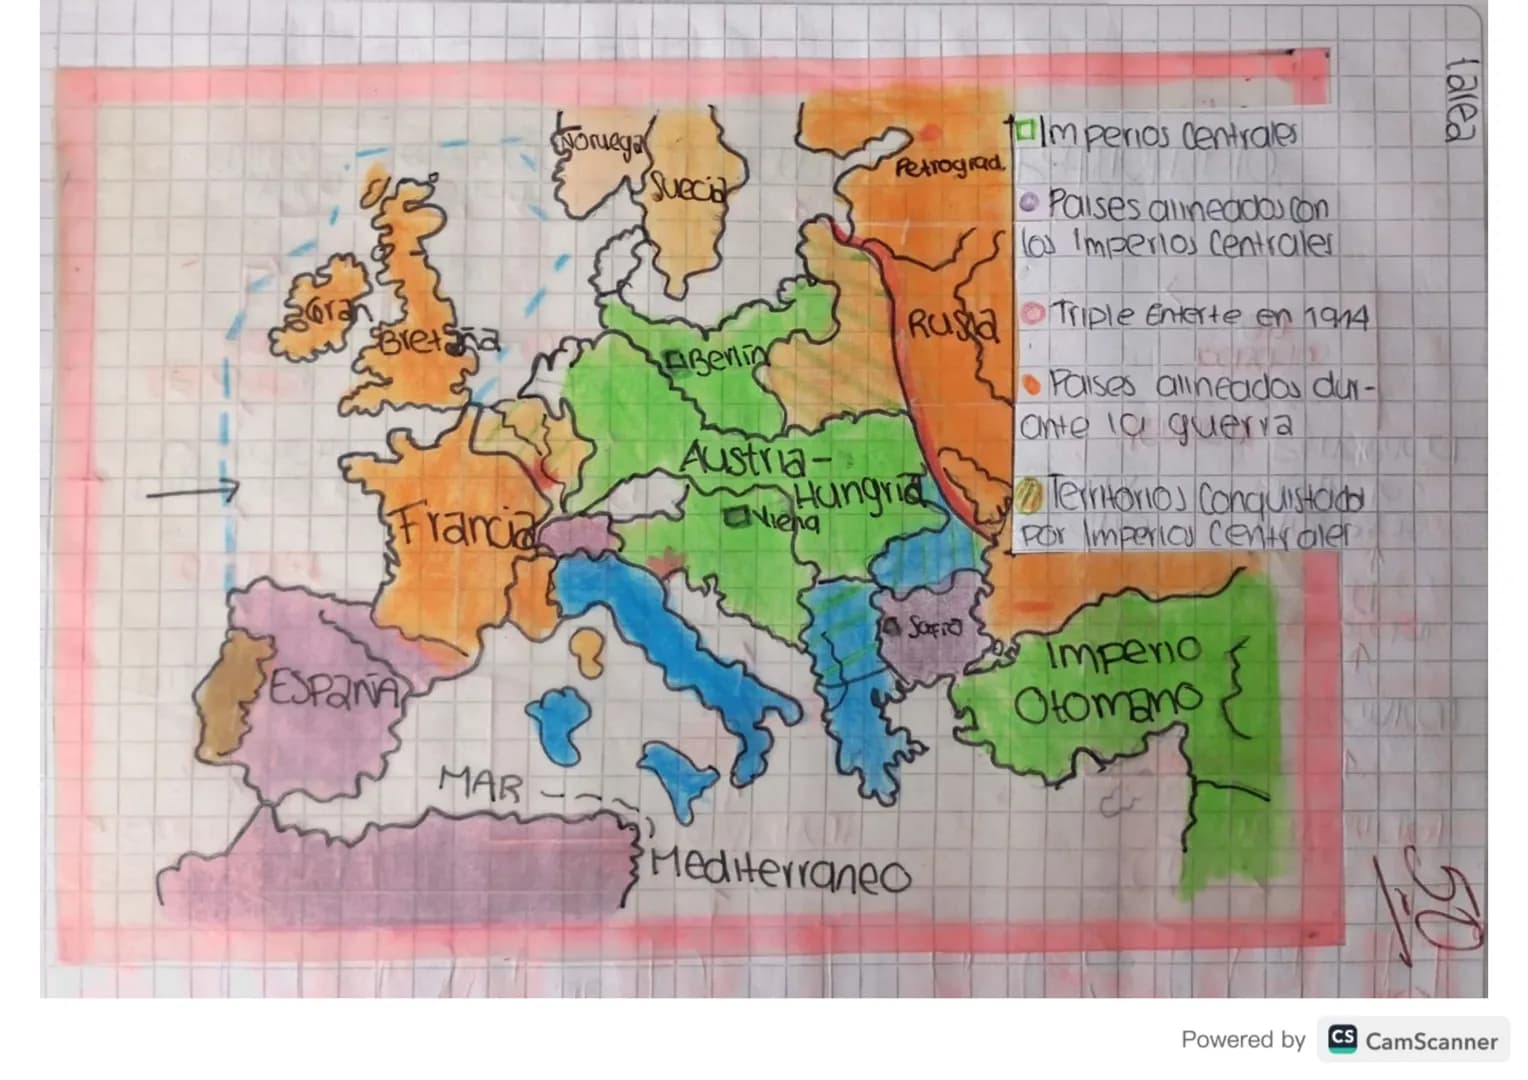 talea
Noruega
Suecia
Petrograd
Gran
Bretaña
Rusia
Berlin
Austria-
Hungria
Viena
Francia
ESPAÑA
Sofia
Imperio
Otomano
MAR
Mediterraneo
Imperios Centrales
Paises alineados con
los Imperios Centrales
Triple Enterte en 1914
Paises alineados dur-
ante la guerra
Territorios Conquistado
por Imperios Centrales
50
Powered by CS CamScanner